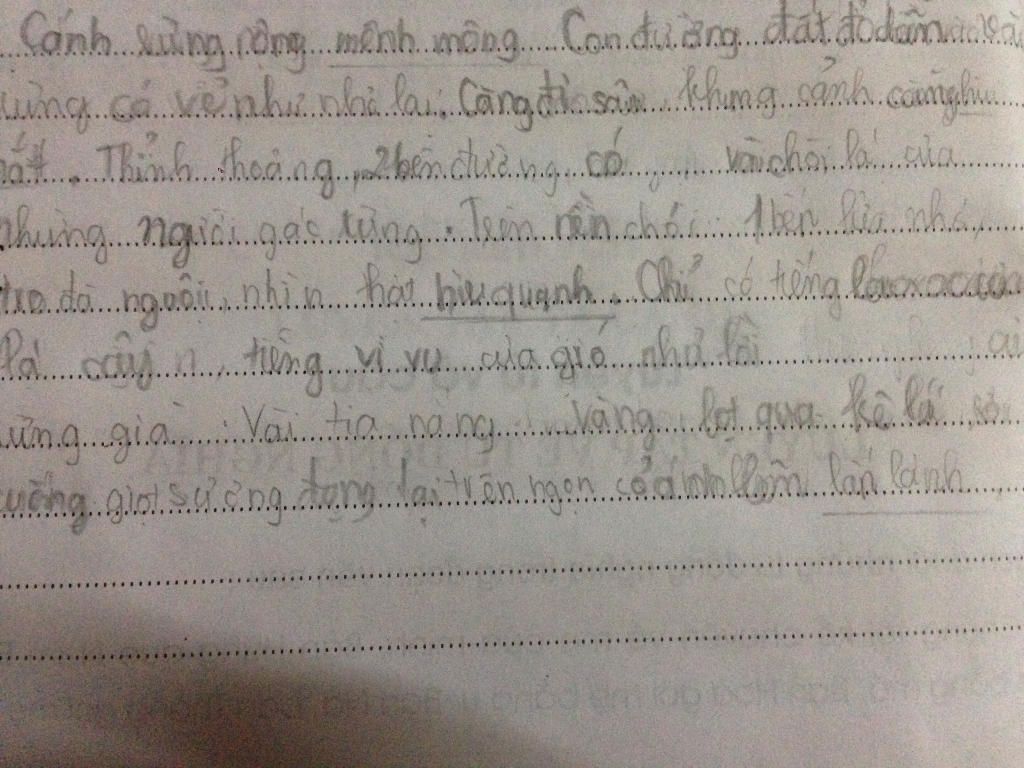 Cánh rừng rộng mênh mông. Con đường đất đỏ dẫn vào
rừng có vẻ như nhỏ lại. Càng đi sâu khung cảnh càng hiu
hắt. Thỉnh thoảng, 2 bên đường có vài chòi lá của
những người gác rừng. Trên nền chòi 1 bến lửa nhỏ,
tro đã nguội, nhìn thật hiu quạnh. Chỉ có tiếng
lá cây, tiếng vi vu của gió như lời
rừng già. Vài tia nắng vàng lọt qua kẽ lá,
giọt sương đọng lại trên ngọn cỏ lấn lánh